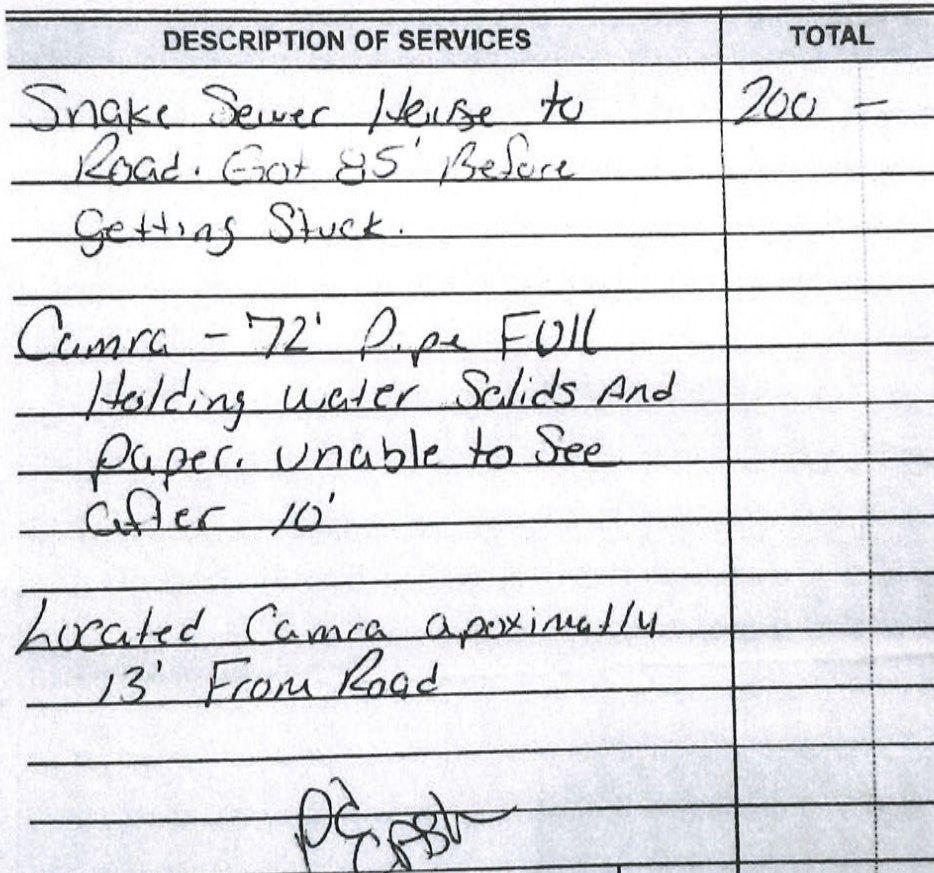 DESCRIPTION OF SERVICES TOTAL
Snake Sewer House to 200 -
Road. Got 85' Before
getting Stuck.
Camra - 72' Pipe FUll
Holding water Solids And
paper. unable to See
after 10'
Located Camra apoximatly
13' From Road